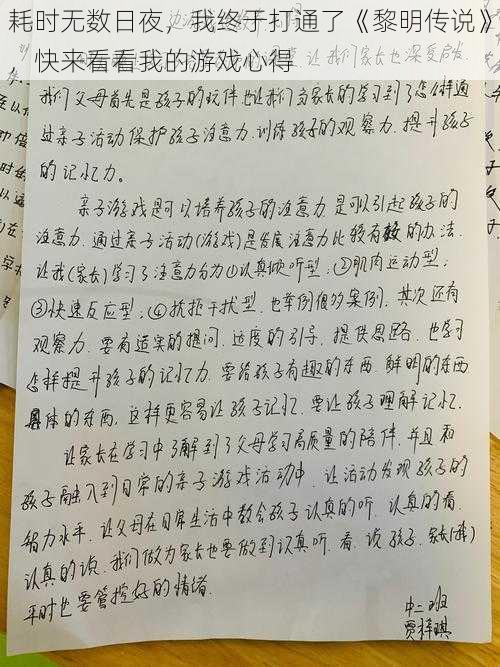 耗时无数日夜，我终于打通了《黎明传说》
，快来看看我的游戏心得
让我们家长也深受启发
我们父母首先是孩子的玩伴也让我们当家长的学习到了怎样通
过亲子活动保护孩子注意力.训练孩子的观察力.提升孩子
的记忆力。
亲子游戏是可以培养孩子的注意力是可以引起孩子的
注意力.通过亲子活动(游戏)是发展注意力比较有效的办法.
让我(家长)学习了注意力分为①认真倾听型;②肌肉运动型;
③快速反应型;④抗拒干扰型.也举例很多案例.其次还有
观察力.要有适实的提问.适度的引导.提供思路.也学习
怎样提升孩子的记忆力.要给孩子有趣的东西.鲜明的东西
具体的东西.这样更容易让孩子记忆.要让孩子理解记忆.
让家长在学习中了解到了父母学习高质量的陪伴.并且和
孩子融入到日常的亲子游戏活动中.让活动发现孩子的
智力水平.让父母在日常生活中教会孩子认真的听.认真的看.
认真的说.我们做为家长也要做到认真听.看.说孩子.家长(我)
平时也要管控好的情绪.
中二班
贾梓琪